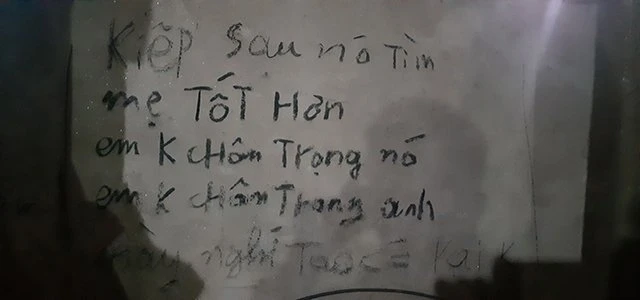 Kiếp sau nó Tìm
mẹ TốT Hơn
em K chân Trọng nó
em K chân Trọng anh
nghỉ Tao